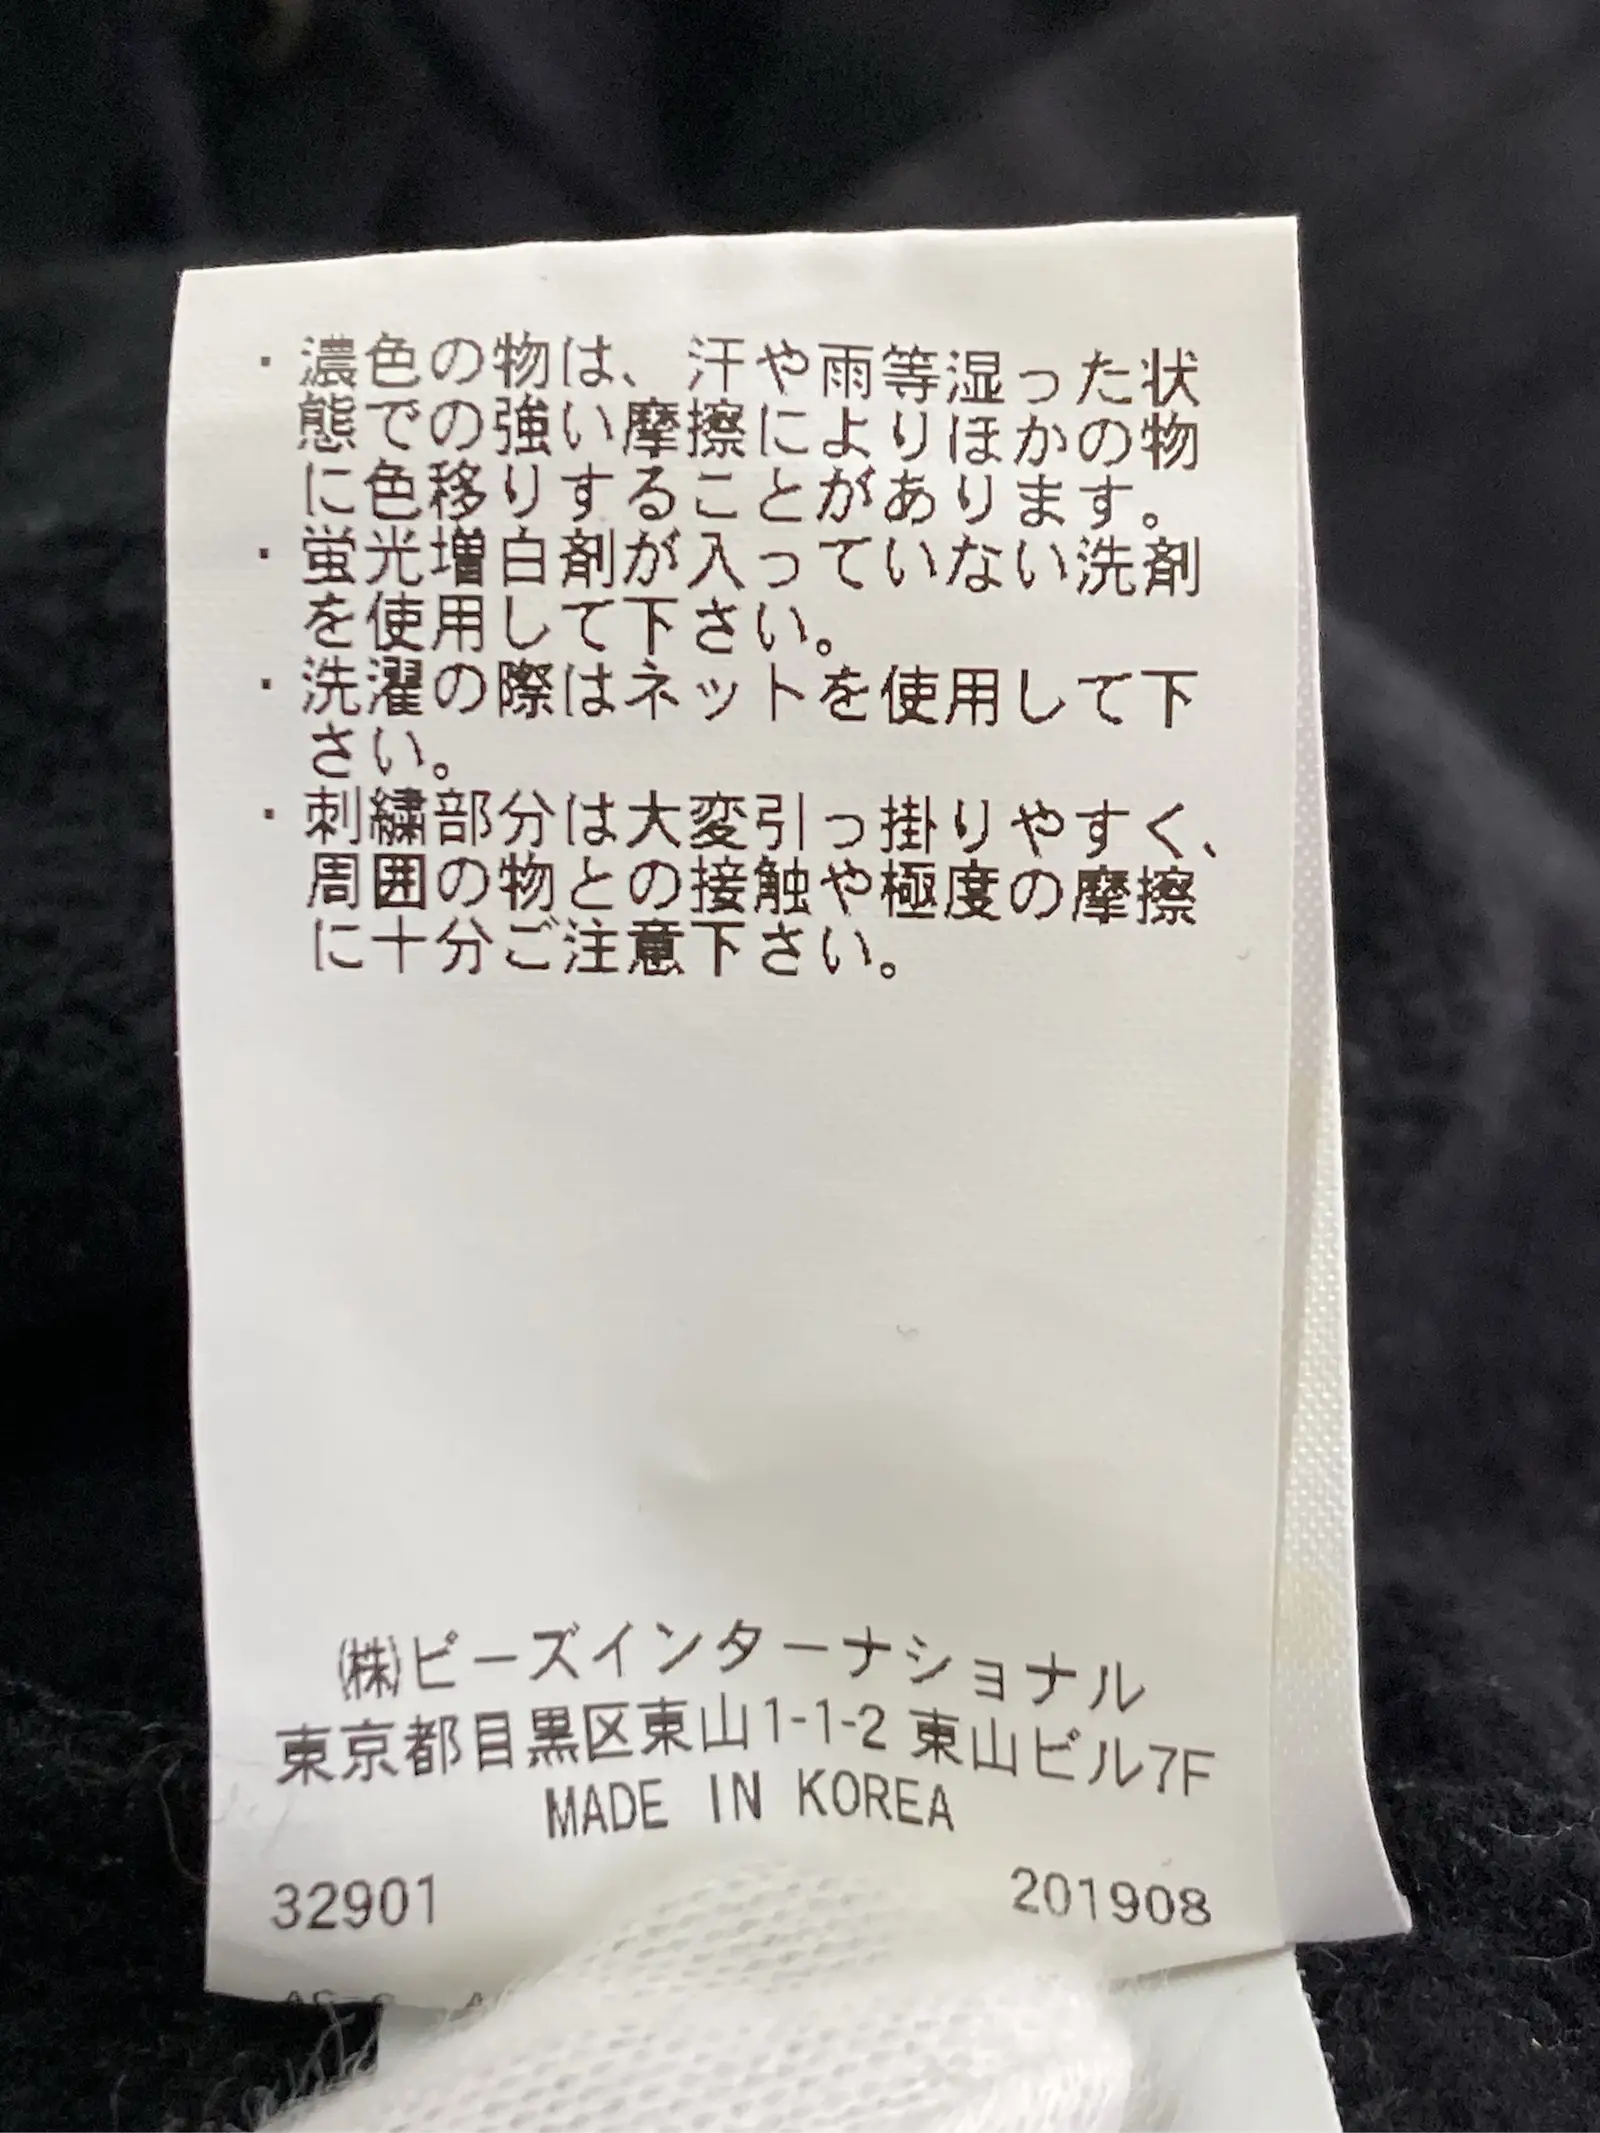 ・濃色の物は、汗や雨等湿った状
態での強い摩擦によりほかの物
に色移りすることがあります。
・蛍光増白剤が入っていない洗剤
を使用して下さい。
・洗濯の際はネットを使用して下
さい。
・刺繍部分は大変引っ掛りやすく、
周囲の物との接触や極度の摩擦
に十分ご注意下さい。
㈱ビーズインターナショナル
東京都目黒区東山1-1-2 東山ビル7F
MADE IN KOREA
32901 201908